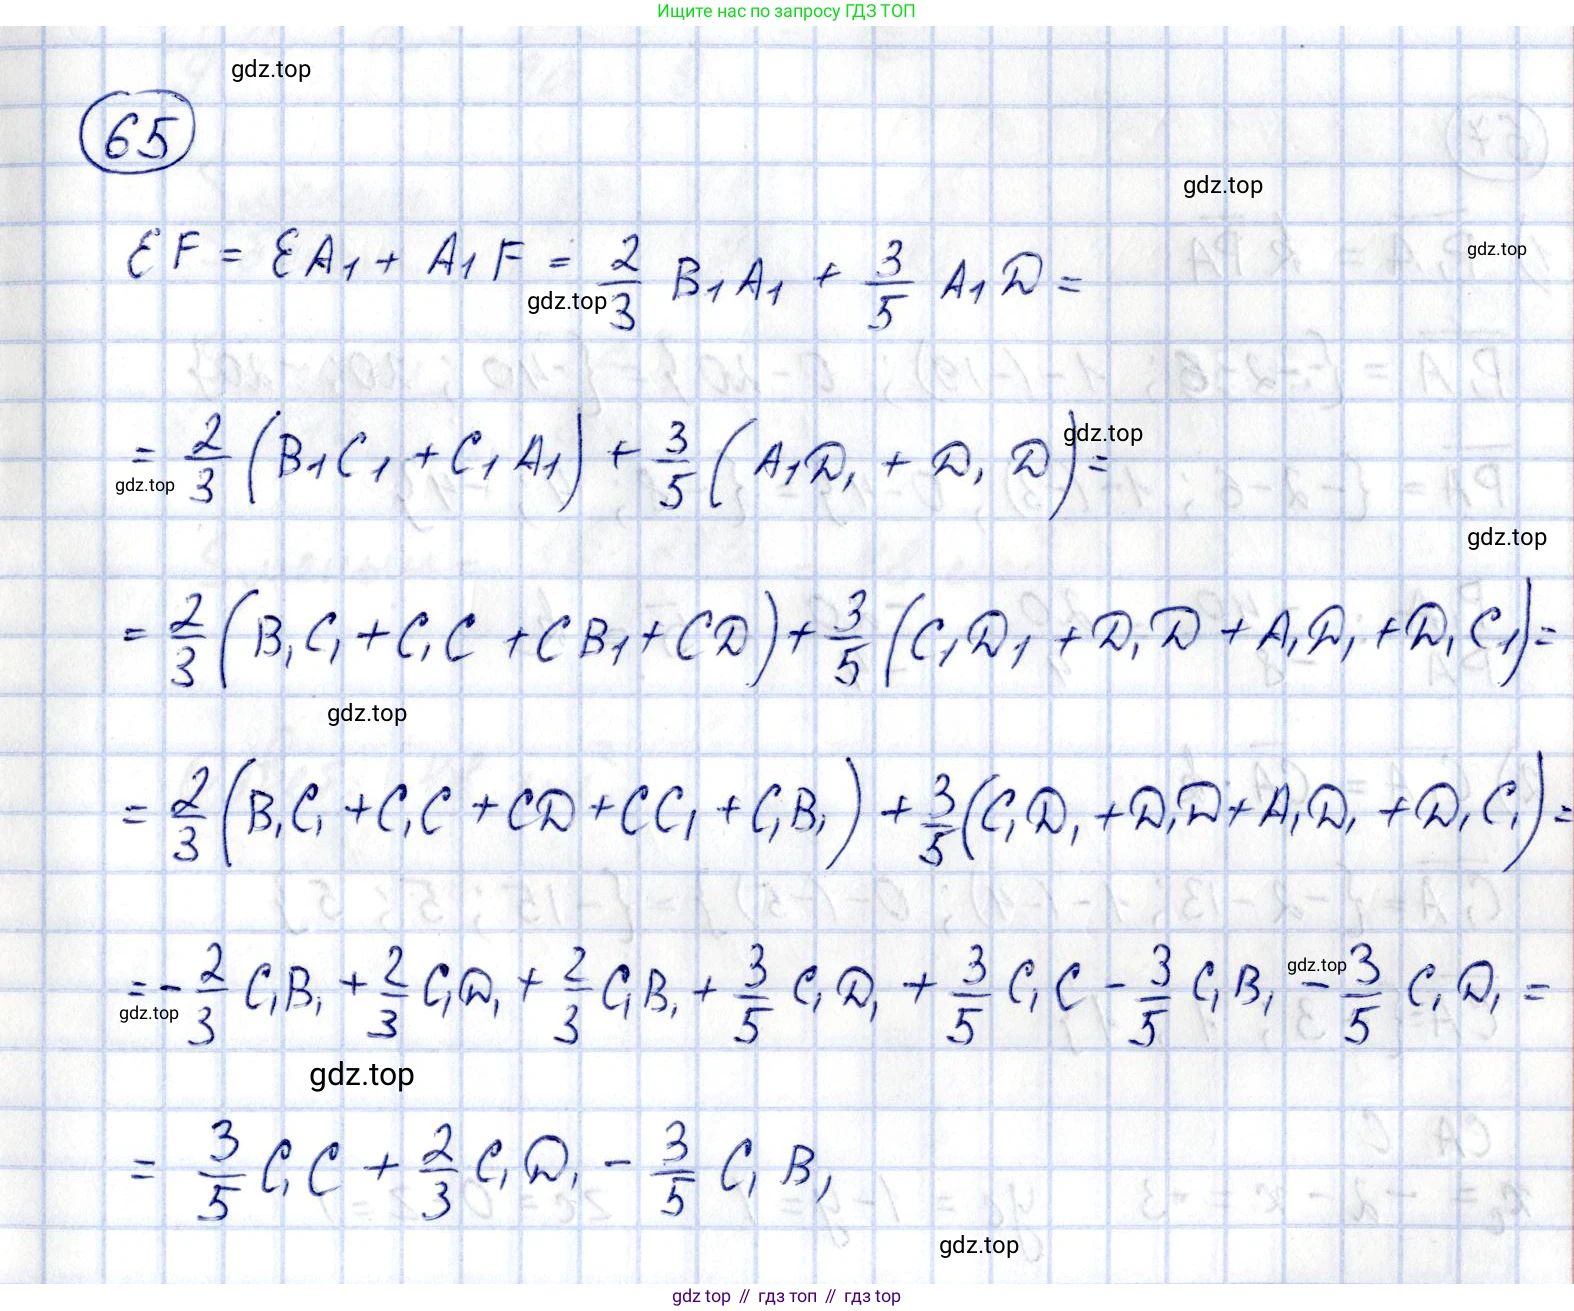 Ищите нас по запросу ГДЗ ТОП
gdz.top
65
gdz.top
EF = EA₁ + A₁F = 2/3 B₁A₁ + 3/5 A₁D =
gdz.top
gdz.top
= 2/3 (B₁C₁ + C₁A₁) + 3/5 (A₁D₁ + D₁D) =
gdz.top
gdz.top
gdz.top
= 2/3 (B₁C₁ + C₁C + CB₁ + CD) + 3/5 (C₁D₁ + D₁D + A₁D₁ + D₁C₁) =
gdz.top
= 2/3 (B₁C₁ + C₁C + CD + CC₁ + C₁B₁) + 3/5 (C₁D₁ + D₁D + A₁D₁ + D₁C₁) =
= - 2/3 C₁B₁ + 2/3 C₁D₁ + 2/3 C₁B₁ + 3/5 C₁D₁ + 3/5 C₁C - 3/5 C₁B₁ - 3/5 C₁D₁ =
gdz.top
gdz.top
gdz.top
= 3/5 C₁C + 2/3 C₁D₁ - 3/5 C₁B₁
gdz.top
gdz top // гдз топ // гдз top